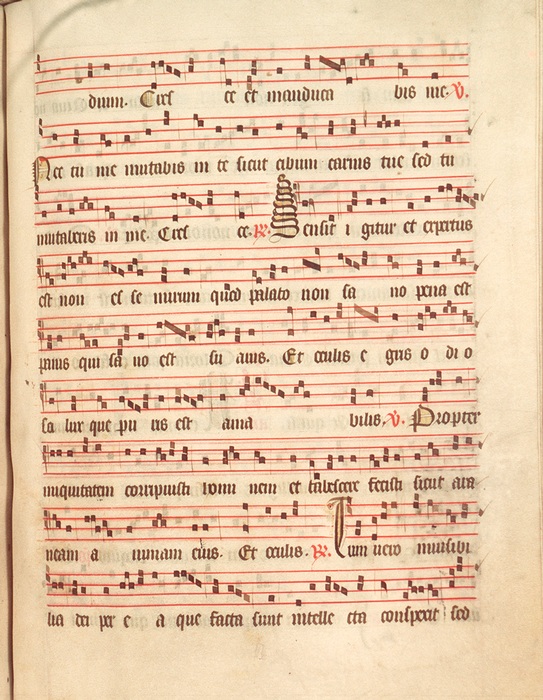 dium. Cres ce et manduca bis me. V.
Nec tu me mutabis in te sicut cibum carnis tue sed tu
mutaberis in me. Cres ce. R. Sensit i gitur et expertus
est non es se mirum quod palato non sa no pena est
panis qui sa no est su avis. Et oculis e gris o di o
sa lux que pu ris est ama bilis. V. Propter
iniquitatem corripuisti homi nem et tabescere fecisti sicut ara
neam a nimam eius. Et oculis. R. Tum vero invisibi
lia dei per e a que facta sunt intelle cta conspexit sed